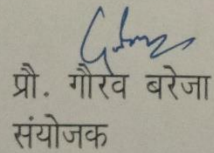 प्रौ. गौरव बरेजा
संयोजक